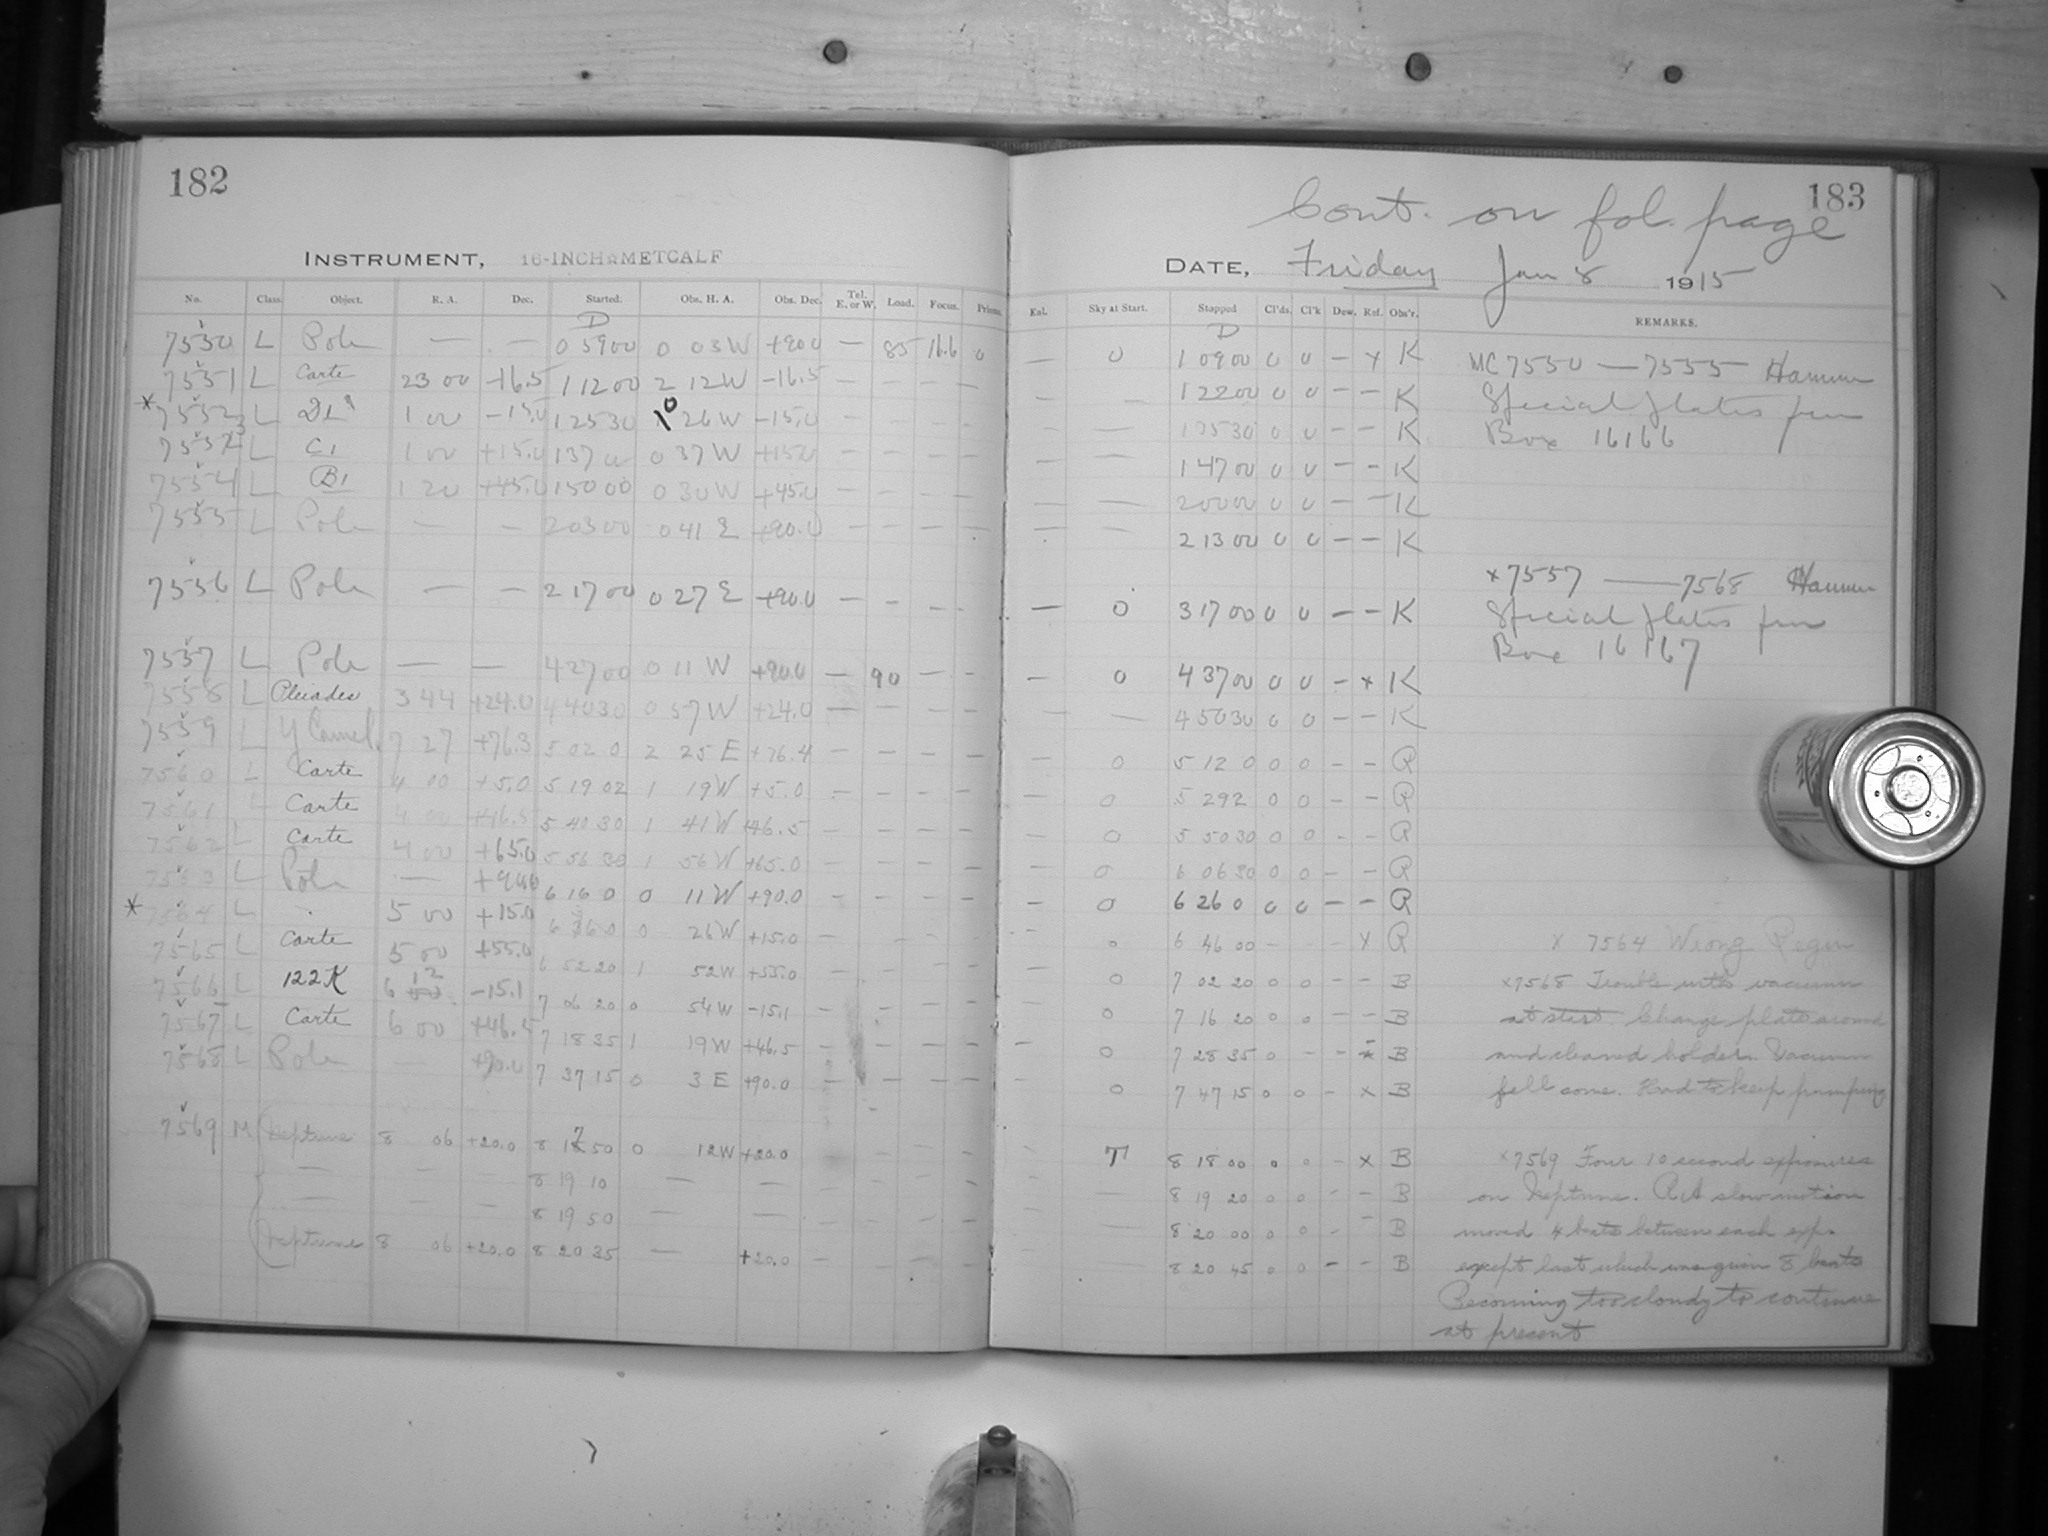 182
INSTRUMENT, 16-INCH METCALF
No. Class. Object. R. A. Dec. Started. Obs. H. A. Obs. Dec. Tel. E. or W. Load. Focus. Prisms.
D
7550 L Pole — — 0 59 00 0 03 W +90.0 — 85 16.6 0
7551 L Carte 23 00 -16.5 1 12 00 2 12 W -16.5 — — — —
L 1 00 -15.0 1 25 30 0 26 W -15.0 — — — —
L C1 1 00 +15.0 1 37 0 37 W +15.0 — — — —
7554 L B1 1 20 +45.0 1 50 00 0 30 W +45.0 — — — —
7555 L Pole — — 2 03 00 0 41 E +90.0 — — — —
7556 L Pole — — 2 17 00 0 27 E +90.0 — — — —
7557 L Pole — — 4 27 00 0 11 W +90.0 — 90 — —
7558 L Pleiades 3 44 +24.0 4 40 30 0 57 W +24.0 — — — —
7559 L Y Camel. 7 27 +76.3 5 02 0 2 25 E +76.4 — — — —
7560 L Carte 4 00 +5.0 5 19 02 1 19 W +5.0 — — — —
7561 L Carte 4 00 +46.5 5 40 30 1 41 W +46.5 — — — —
7562 L Carte 4 00 +65.0 5 56 30 1 56 W +65.0 — — — —
7563 L Pole — +90.0 6 16 0 0 11 W +90.0 — — — —
* 7564 L 5 00 +15.0 6 36 0 0 26 W +15.0 — — — —
7565 L Carte 5 00 +55.0 6 52 20 1 52 W +55.0 — — — —
7566 L 122K 6 12 -15.1 7 06 20 0 54 W -15.1 — — — —
7567 L Carte 6 00 +46.5 7 18 35 1 19 W +46.5 — — — —
7568 L Pole — +90.0 7 37 15 0 3 E +90.0 — — — —
7569 M Neptune 8 06 +20.0 8 17 50 0 12 W +20.0 — — — —
— — — 8 19 10 — — — — — —
— — — 8 19 50 — — — — — —
Neptune 8 06 +20.0 8 20 35 — +20.0 — — — —
183
Cont. on fol. page
DATE, Friday Jan 8 1915
Eal. Sky at Start. Stopped Cl'ds. Cl'k Dew. Ref. Obs'r. REMARKS.
D
— 0 1 09 00 0 0 — x K MC 7550 — 7555 Hammer
— — 1 22 00 0 0 — — K Special plates from
— — 1 35 30 0 0 — — K Box 16166
— — 1 47 00 0 0 — — K
— — 2 00 00 0 0 — — K
— — 2 13 00 0 0 — — K
x 7557 — 7568 Hammer
— 0 3 17 00 0 0 — — K Special plates from
Box 16167
— 0 4 37 00 0 0 — x K
— — 4 50 30 0 0 — — K
— 0 5 12 0 0 0 — — R
— 0 5 29 2 0 0 — — R
— 0 5 50 30 0 0 — — R
— 0 6 06 30 0 0 — — R
— 0 6 26 0 0 0 — — R
— 0 6 46 00 — — — x R x 7564 Wrong Region
— 0 7 02 20 0 0 — — B x7568 Trouble with vacuum
— 0 7 16 20 0 0 — — B at start. Change plate around
— 0 7 28 35 0 — — x B and cleaned holder. Vacuum
— 0 7 47 15 0 0 — x B fell some. Had to keep pumping
— T 8 18 00 0 0 — x B x7569 Four 10 second exposures
— — 8 19 20 0 0 — — B on Neptune. RA slow motion
— — 8 20 00 0 0 — — B moved 4 beats between each exp.
— — 8 20 45 0 0 — — B except last which was given 8 beats
Becoming too cloudy to continue
at present